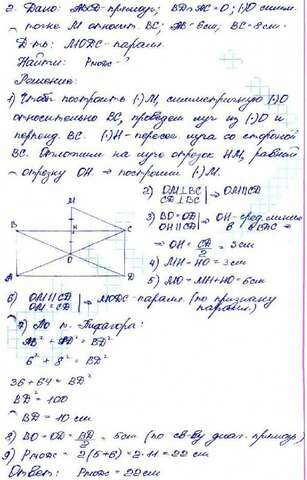 2. Дано: ABCD-прямоуг.; BD∩AC=O; (·)O симм.
точке M относит. BC; AB=6см; BC=8см.
Д-ть: MODC-паралл.
Найти: Pмодс=
Решение:
1) Чтобы построить (·)M, симметричную (·)O
относительно BC, проведем луч из (·)O и
перпенд. BC. (·)H-пересеч. луча со стороной
BC. Отложим на луче отрезок HM, равный
отрезку OH. → построили (·)M.
2) OM⊥BC | → OM∥CD
CD⊥BC
3) BO=OD | → OH-сред. линия
OH∥CD в △BDC →
→ OH = CD/2 = 3см
4) MH=HO=3см
5) MO=MH+HO=6см
M
B
K
C
O
A
D
6) OM∥CD | → MODC-паралл. (по признаку
OM=CD паралл.)
7) По т. Пифагора:
AB²+AD²=BD²
6²+8²=BD²
36+64=BD²
BD²=100
BD=10см
8) BO=OD=BD/2=5см (по св-ву диаг. прямоуг.)
9) Pмодс=2(5+6)=2·11=22см
Ответ: Pмодс=22см